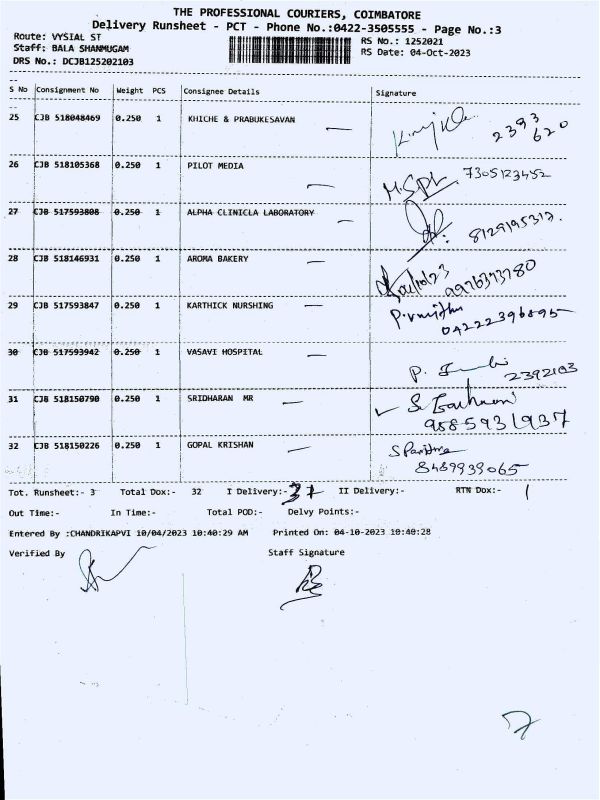 THE PROFESSIONAL COURIERS, COIMBATORE
Delivery Runsheet - PCT - Phone No.:0422-3505555 - Page No.:3
Route: VYSIAL ST
RS No.: 1252021
Staff: BALA SHANMUGAM
RS Date: 04-Oct-2023
DRS No.: DCJB125202103
S No Consignment No Weight PCS Consignee Details Signature
25 CJB 518048469 0.250 1 KHICHE & PRABUKESAVAN 2393
620
26 CJB 518105368 0.250 1 PILOT MEDIA 7305123452
27 CJB 517593808 0.250 1 ALPHA CLINICLA LABORATORY 8129195312.
28 CJB 518146931 0.250 1 AROMA BAKERY
29 CJB 517593847 0.250 1 KARTHICK NURSHING
30 CJB 517593942 0.250 1 VASAVI HOSPITAL
2392103
31 CJB 518150790 0.250 1 SRIDHARAN MR
9585931937
32 CJB 518150226 0.250 1 GOPAL KRISHAN
8489939065
Tot. Runsheet:- 3 Total Dox:- 32 I Delivery:- 31 II Delivery:- RTN Dox:- 1
Out Time:- In Time:- Total POD:- Delvy Points:-
Entered By :CHANDRIKAPVI 10/04/2023 10:40:29 AM Printed On: 04-10-2023 10:40:28
Verified By Staff Signature